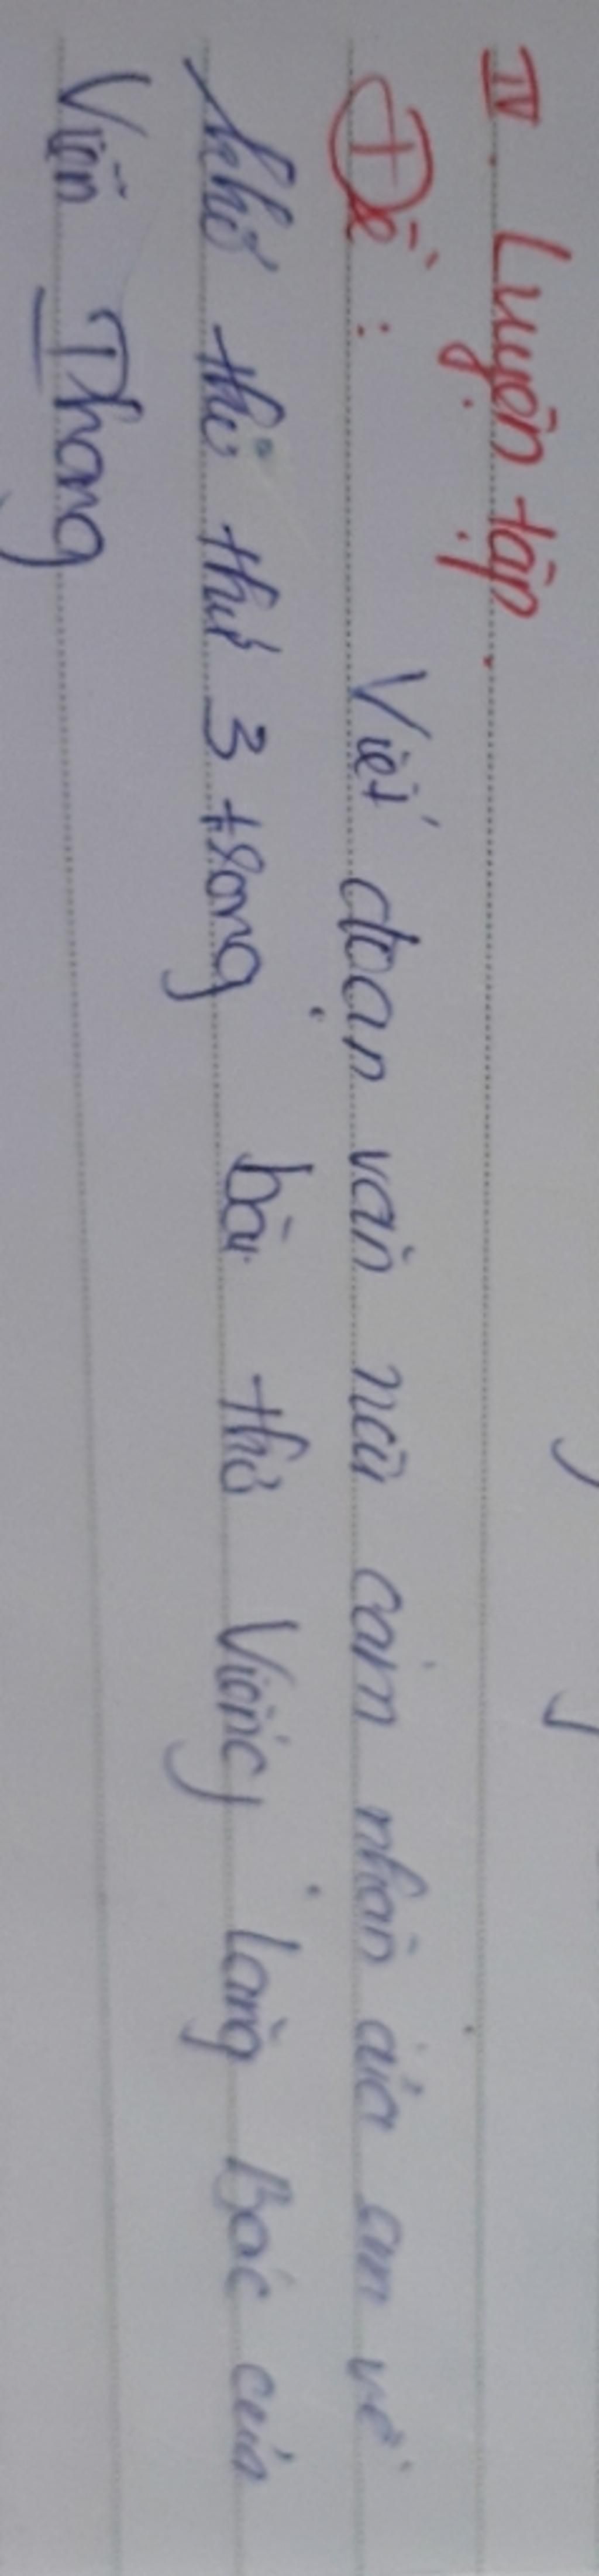 IV. Luyện tập.
Đề: Viết đoạn văn nêu cảm nhận của em về
khổ thơ thứ 3 trong bài thơ Viếng lăng Bác của
Viễn Phương